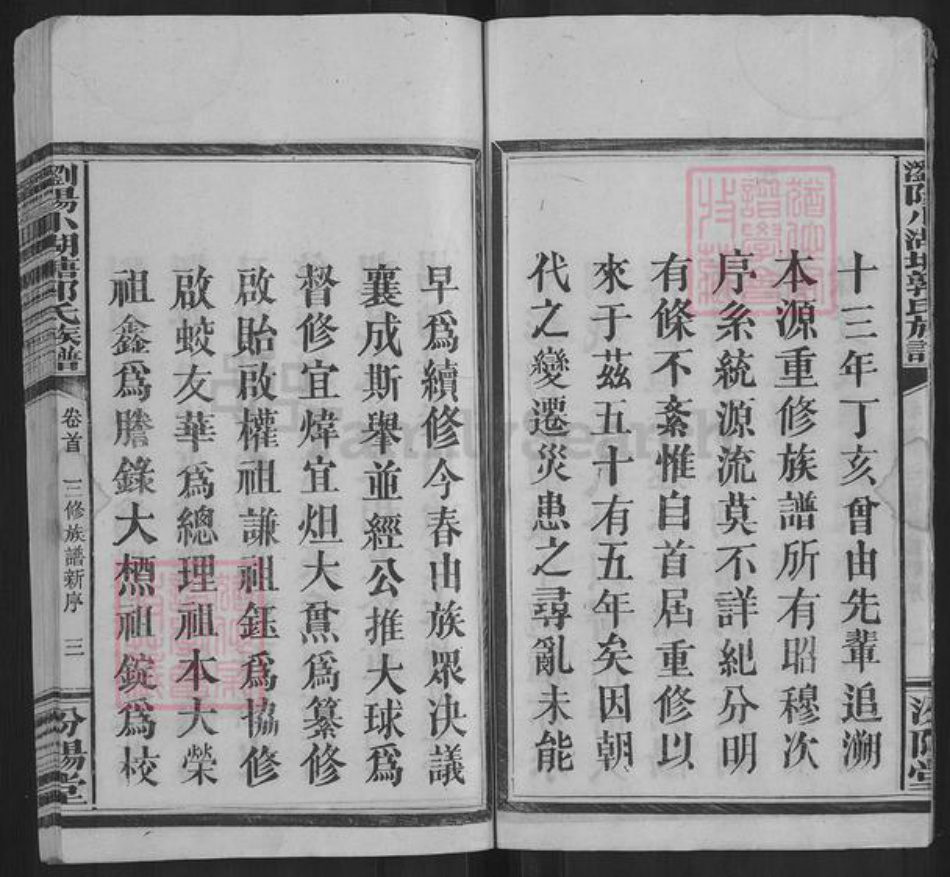 瀏陽小湖塘郭氏族譜
十三年丁亥曾由先輩追溯
本源重修族譜所有昭穆次
序系統源流莫不詳紀分明
有條不紊惟自首屆重修以
來于茲五十有五年矣因朝
代之變遷災患之尋亂未能
早爲續修今春由族眾決議
襄成斯舉並經公推大球爲
督修宜煒宜烜大鼐爲纂修
啟貽啟權祖謙祖鈺爲協修
啟蛟友華爲總理祖本大榮
祖鑫爲謄錄大標祖錠爲校
瀏陽小湖塘郭氏族譜
卷首
三修族譜新序
三
汾陽堂